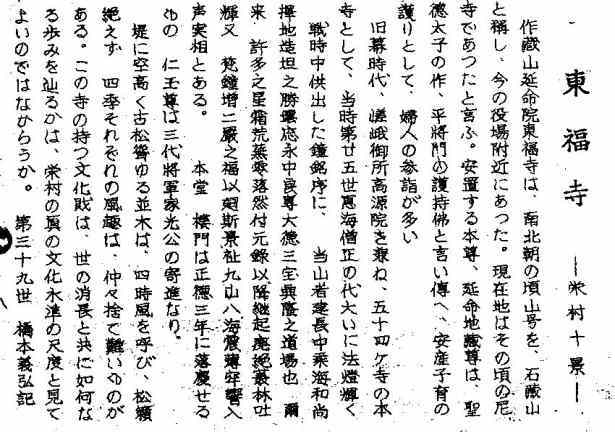 東福寺
―栄村十景―
作蔵山延命院東福寺は、南北朝の頃山号を、石蔵山
と稱し、今の役場附近にあつた。現在地はその頃の尼
寺であつたと言ふ。安置する本尊、延命地蔵尊は、聖
德太子の作、平將門の護持佛と言い傳へ、安産子育の
護りとして、婦人の参詣が多い
旧幕時代、嵯峨御所高源院を兼ね、五十四ケ寺の本
寺として、当時第廿五世恵海僧正の代大いに法燈輝く
戦時中供出した鐘銘序に、当山者建長中乗海和尚
擇地造坦之勝
応永中良尊大德三宝興隆之道場也 爾
来 許多之星霜荒蕪寥落然村元錄以降継起廃絶叢林吐
輝又 梵鐘増二嚴之福以
斯景祉九山八海震
響入
声実相とある。 本堂 樓門は正德三年に落慶せる
もの 仁王尊は三代將軍家光公の寄進なり。
堤に空高く古松聳ゆる並木は、四時風を呼び、松籟
絶えず 四季それぞれの風趣は、仲々捨て難いものが
ある。この寺の持つ文化財は、世の消長と共に如何な
る歩みを辿るかは、栄村の眞の文化水準の尺度と見て
よいのではなからうか。 第三十九世 橋本義弘記